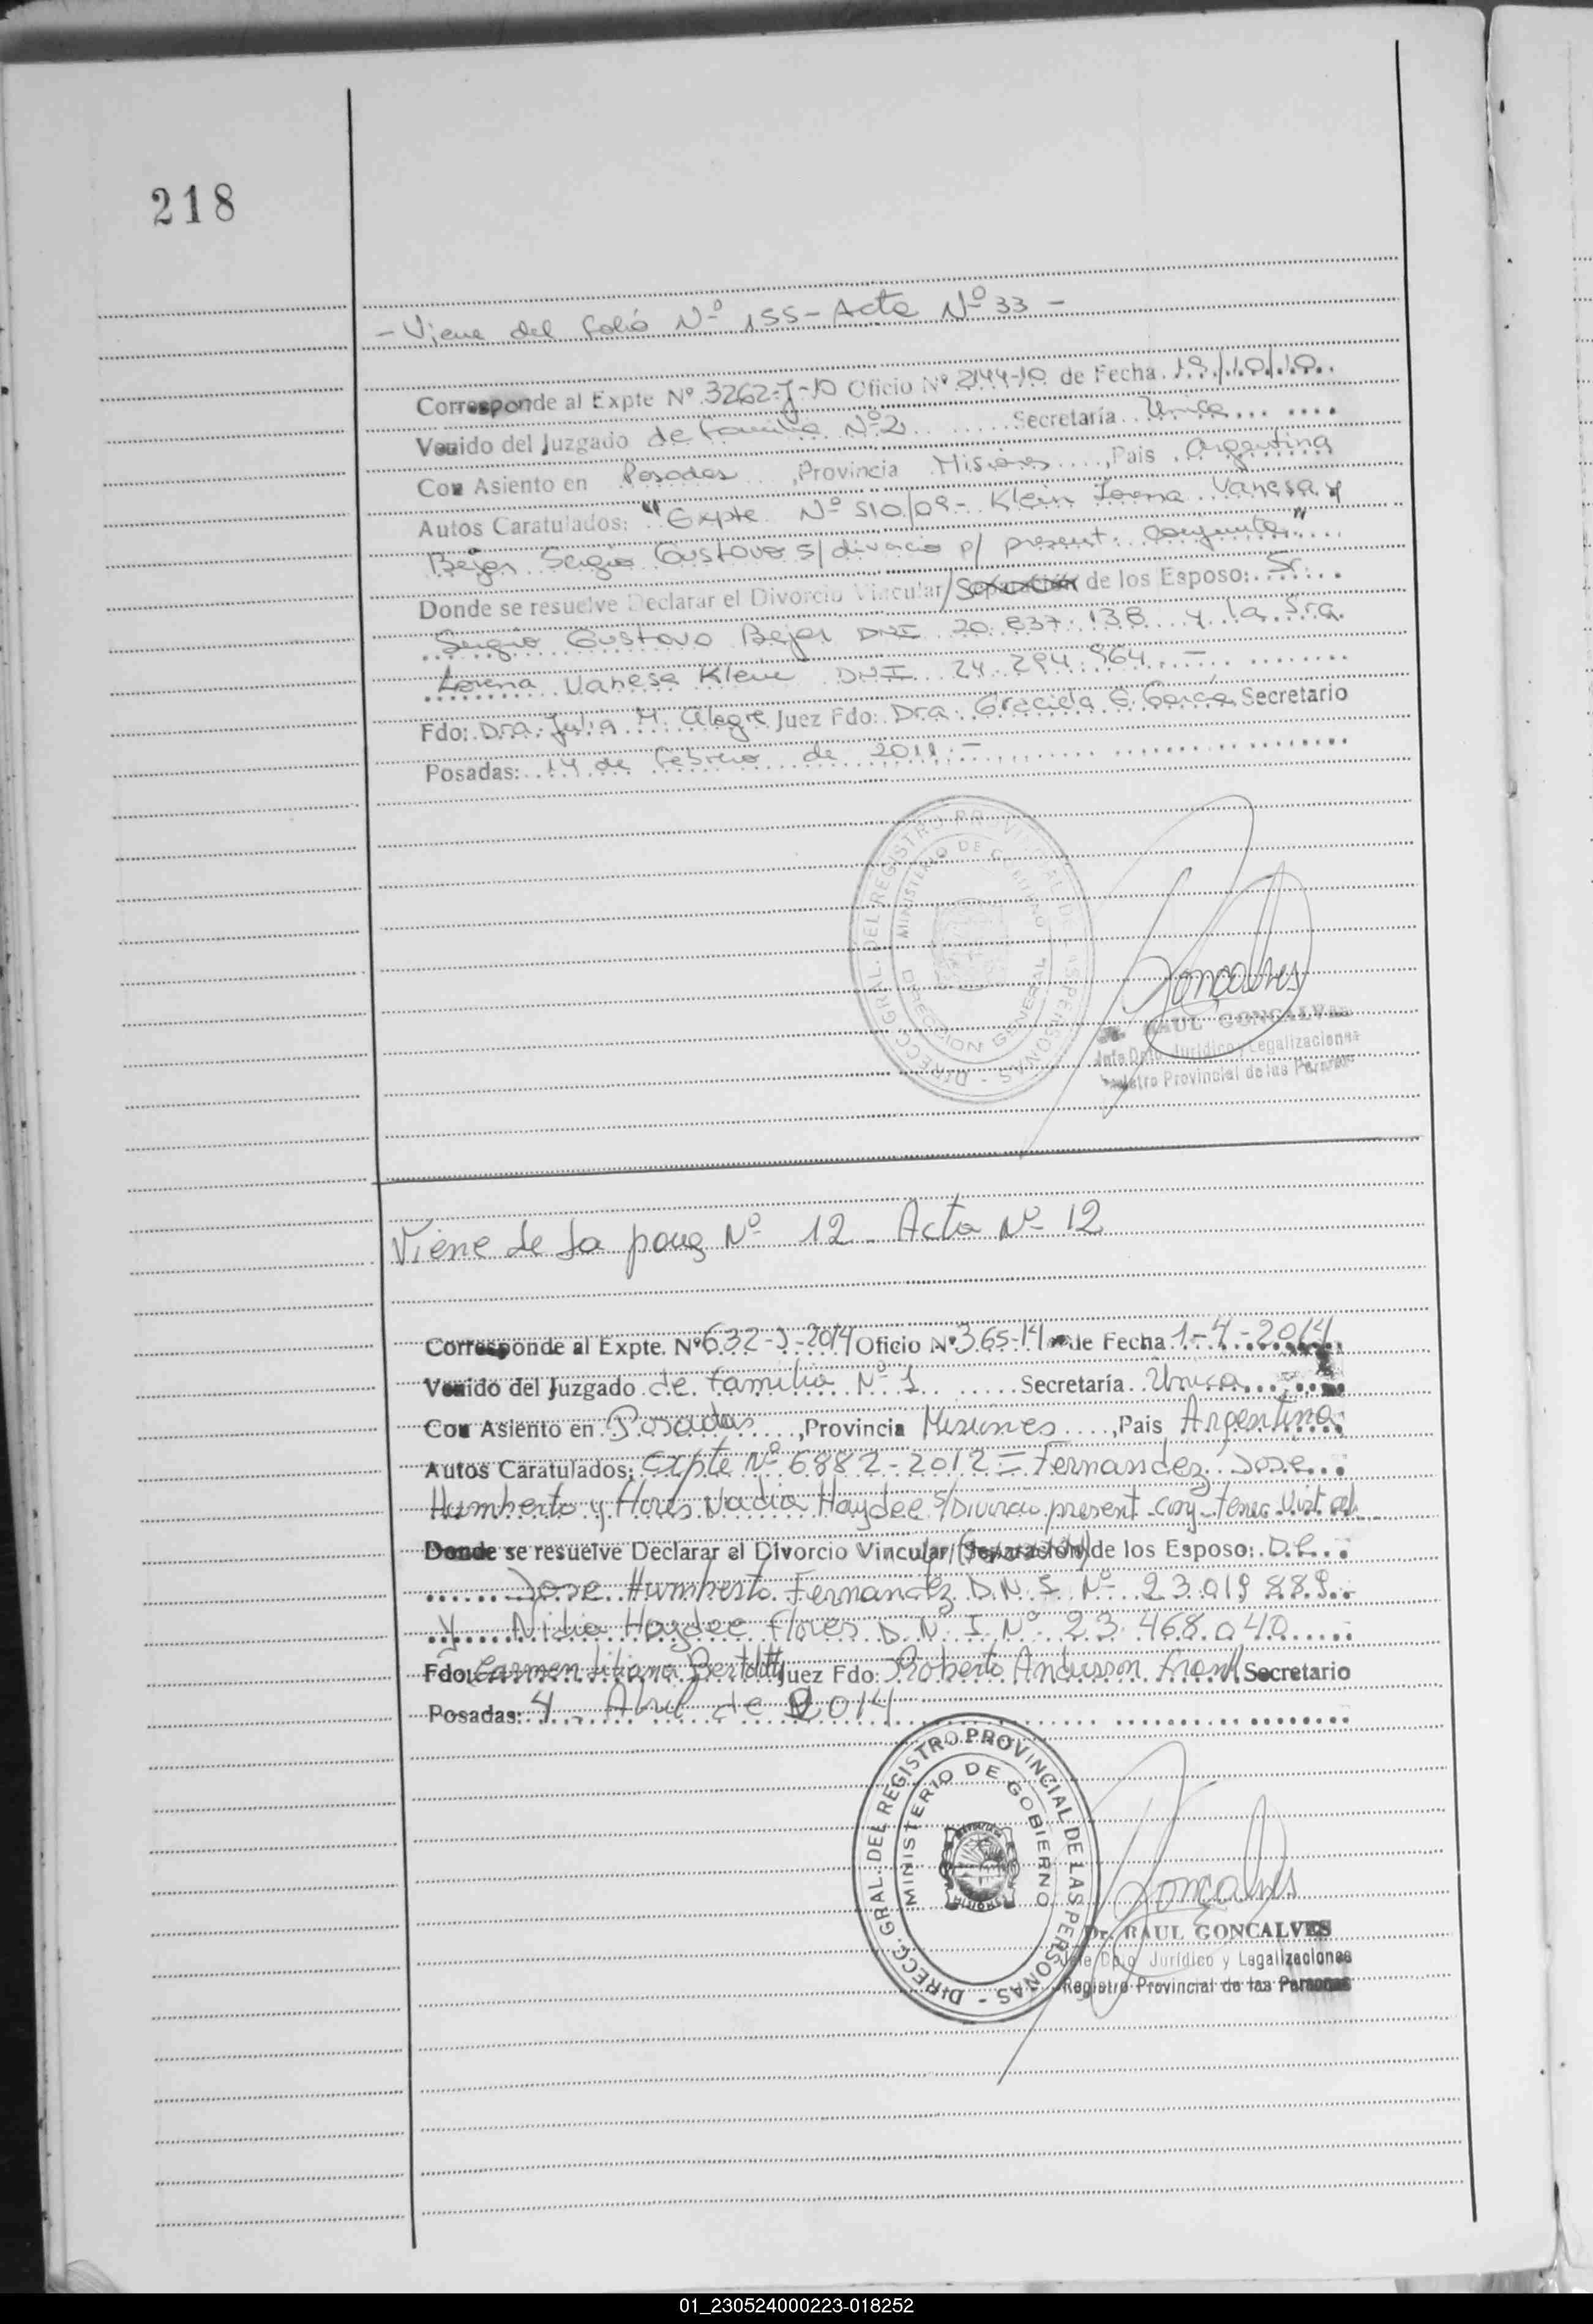 218
- Viene del folio Nº 155 - Acta Nº 33 -
Corresponde al Expte Nº 3262-J-10 Oficio Nº 2144-10 de Fecha 19/10/10
Venido del Juzgado de familia Nº 2 Secretaría Unica
Con Asiento en Posadas, Provincia Misiones, Pais Argentina
Autos Caratulados: "Expte Nº 510/09 - Klein Lorena Vanesa y
Bejar Sergio Gustavo s/ divorcio p/ present. conjunta"
Donde se resuelve Declarar el Divorcio Vincular/Separación de los Esposo: Sr.
Sergio Gustavo Bejar DNI 20.837.138 y la Sra.
Lorena Vanesa Klein DNI 24.294.964 -
Fdo: Dra. Julia M. Alegre Juez Fdo: Dra. Graciela G. García Secretario
Posadas: 14 de febrero de 2011 -
DIRECC. GRAL. DEL REGISTRO PROVINCIAL DE LAS PERSONAS -
MINISTERIO DE GOBIERNO
DIRECCION GENERAL
Goncalves
RAUL GONCALVES
Jefe Dpto. Jurídico y Legalizaciones
Registro Provincial de las Personas
Viene de la pag Nº 12 - Acta Nº 12
Corresponde al Expte. Nº 632-J-2014 Oficio Nº 365-14 de Fecha 1-4-2014
Venido del Juzgado de familia Nº 1 Secretaría Unica
Con Asiento en Posadas, Provincia Misiones, Pais Argentina
Autos Caratulados: Expte Nº 6882-2012 = Fernandez Jose
Humberto y Flores Nadia Haydee s/Divorcio present - conj - tenec. Visit
Donde se resuelve Declarar el Divorcio Vincular/(Separación) de los Esposo: De
Jose Humberto Fernandez D.N.I. Nº 23.019.889
y Nidia Haydee Flores D.N.I. Nº 23.468.040
Fdo: Carmen Liliana Juez Fdo: Roberto Andersson Secretario
Posadas: 4 Abril de 2014
DIRECC. GRAL. DEL REGISTRO PROVINCIAL DE LAS PERSONAS -
MINISTERIO DE GOBIERNO
MISIONES
Goncalves
Dr. RAUL GONCALVES
Jefe Dpto Jurídico y Legalizaciones
Registro Provincial de las Personas
01_230524000223-018252